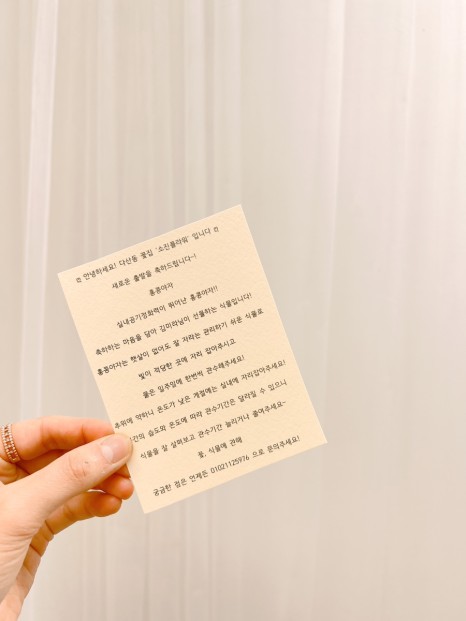 ദ്ദി 안녕하세요! 다산동 꽃집 '소진플라워' 입니다 ദ്ദി
새로운 출발을 축하드립니다~!
홍콩야자
실내공기정화력이 뛰어난 홍콩야자!!
축하하는 마음을 담아 김미라님이 선물하는 식물입니다!
홍콩야자는 햇살이 없어도 잘 자라는 관리하기 쉬운 식물로
빛이 적당한 곳에 자리 잡아주시고
물은 일주일에 한번씩 관수해주세요!
추위에 약하니 온도가 낮은 계절에는 실내에 자리잡아주세요!
습도와 온도에 따라 관수기간은 달라질 수 있으니
식물을 잘 살펴보고 관수기간 늘리거나 줄여주세요~
꽃, 식물에 관해
궁금한 점은 언제든 01021125976 으로 문의주세요!